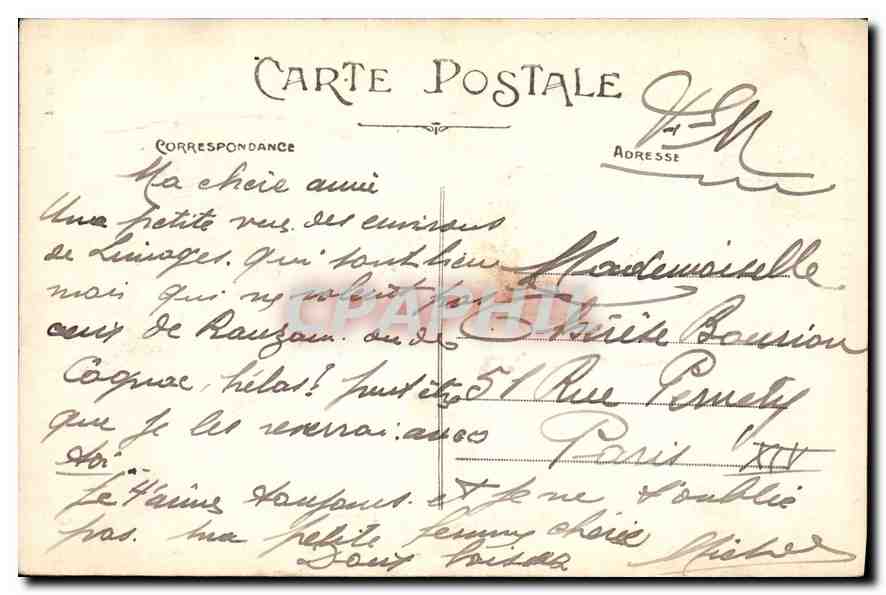 CARTE POSTALE
V-EM
CORRESPONDANCE
ADRESSE
Ma chère amie
Une petite vue des environs
de Limoges. qui sont bien
mais qui ne valent pas
ceux de Rauzan. ou de
Cognac, hélas! peut être
que je les reverrai avec
toi.
Je t'aime toujours et je ne t'oublie
pas. ma petite femme chérie
Doux baisers
Michel
Mademoiselle
Thérèse Bourion
51 Rue Pernety
Paris XIV
CPAPHIL